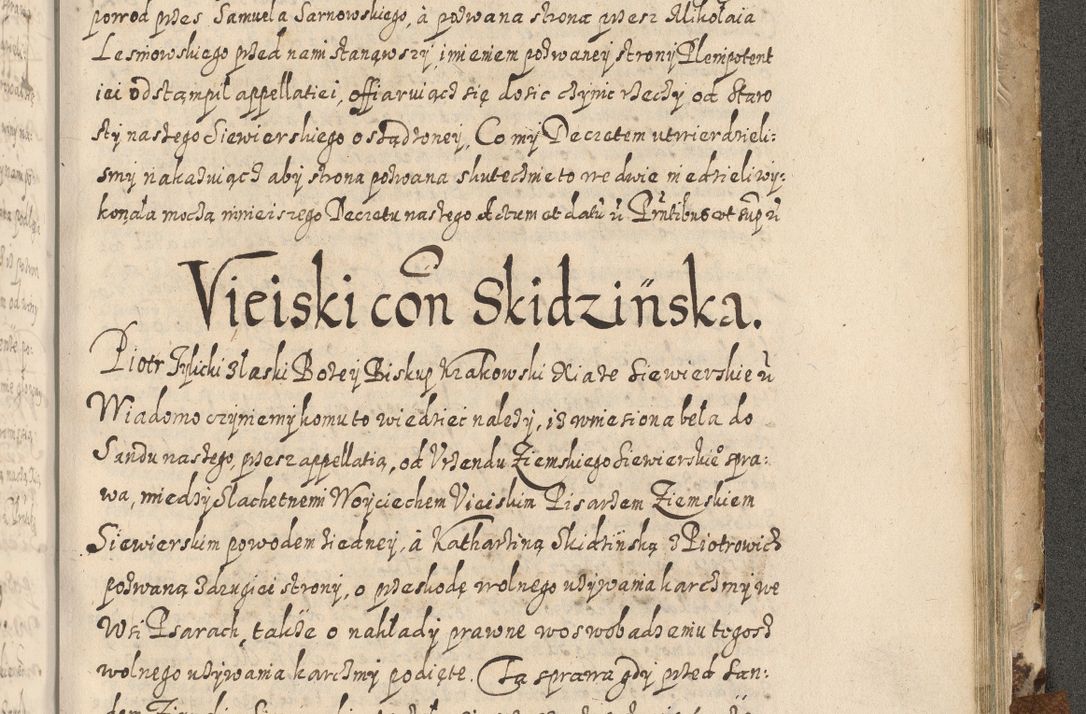 powod przes Samuela Sarnowskiego, à pozwana strona przez Mikołaia
Lesniowskiego przed nami stanąwszy, imieniem pozwaney strony Plenipotent
iei odstąmpił appellatiei, offiaruiącz się dosic czynic rzeczy od Staro
sty naszego Siewierskiego osządzoney, Co my Decretem utwierdzieli:
smy nakazuiącz aby strona pozwana skutecznie to we dwie niedzieli wy:
konała moczą ninieiszego Decretu naszego Actum et datū ū Pñtibus et supū
Vieiski con Skidzińska.
Piotr Tylicki z łaski Bozey Biskup Krakowski Xiąze Siewierskie ū
Wiadomo czyniemy komu to wiedziec nalezy, iz wniesiona beła do
Sandu naszego, przesz appellatią, od Vrzendu Ziemskiego Siewierskiego spra:
wa, miedzy Slachetnemi Woyciechem Vieiskim Pisarzem Ziemskiem
Siewierskim powodem ziedney, à Katharziną Skidzińską z Piotrowicz
pozwaną z drugiei strony, o przeskodę wolnego uzywania karczmy we
Wsi Psarach, takze o nakłady prawne wo swobadzeniu tegosz
wolnego uzywania karczmy podięte. Ta sprawa gdy przed San: